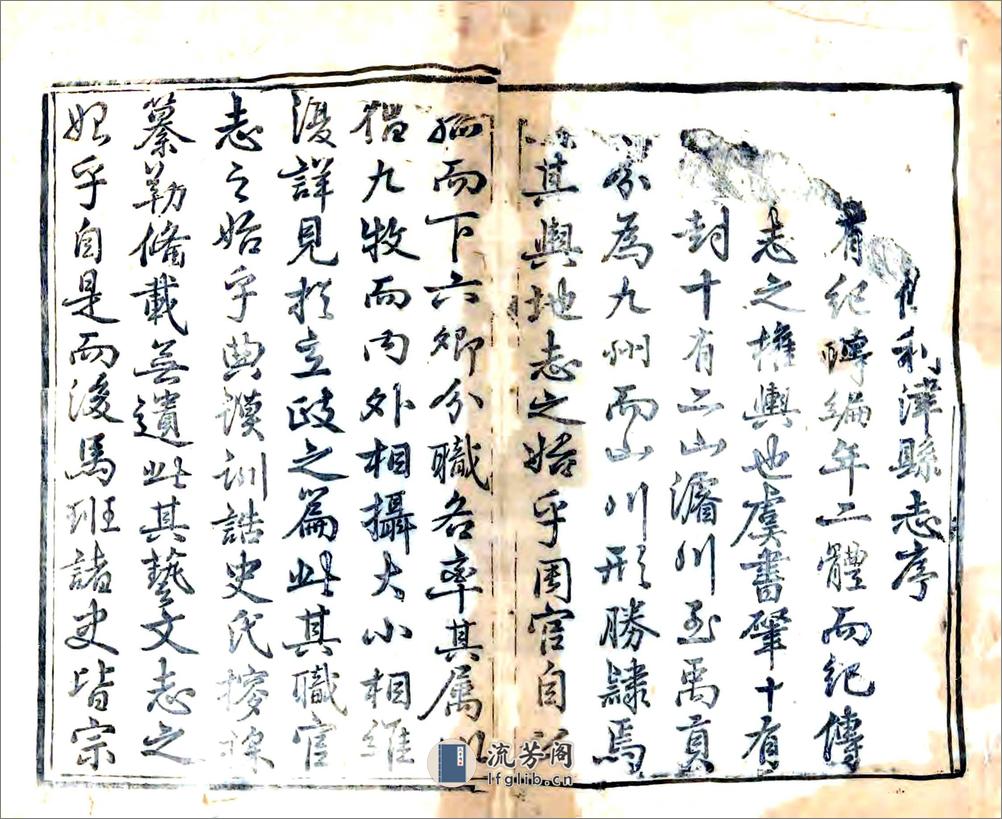 利津縣志序
有紀傳編年二體而紀傳
志之權輿也虞書肇十有
封十有二山濬川至禹貢
分為九州而山川形勝隸焉
其輿地志之始乎周官自
孤而下六卿分職各率其属以
倡九牧而內外相攝大小相維
復詳見於立政之篇此其職官
志之始乎典謨訓誥史氏
纂勒備載無遺此其藝文志之
始乎自是而後馬班諸史皆宗
流芳阁
lfglib.cn